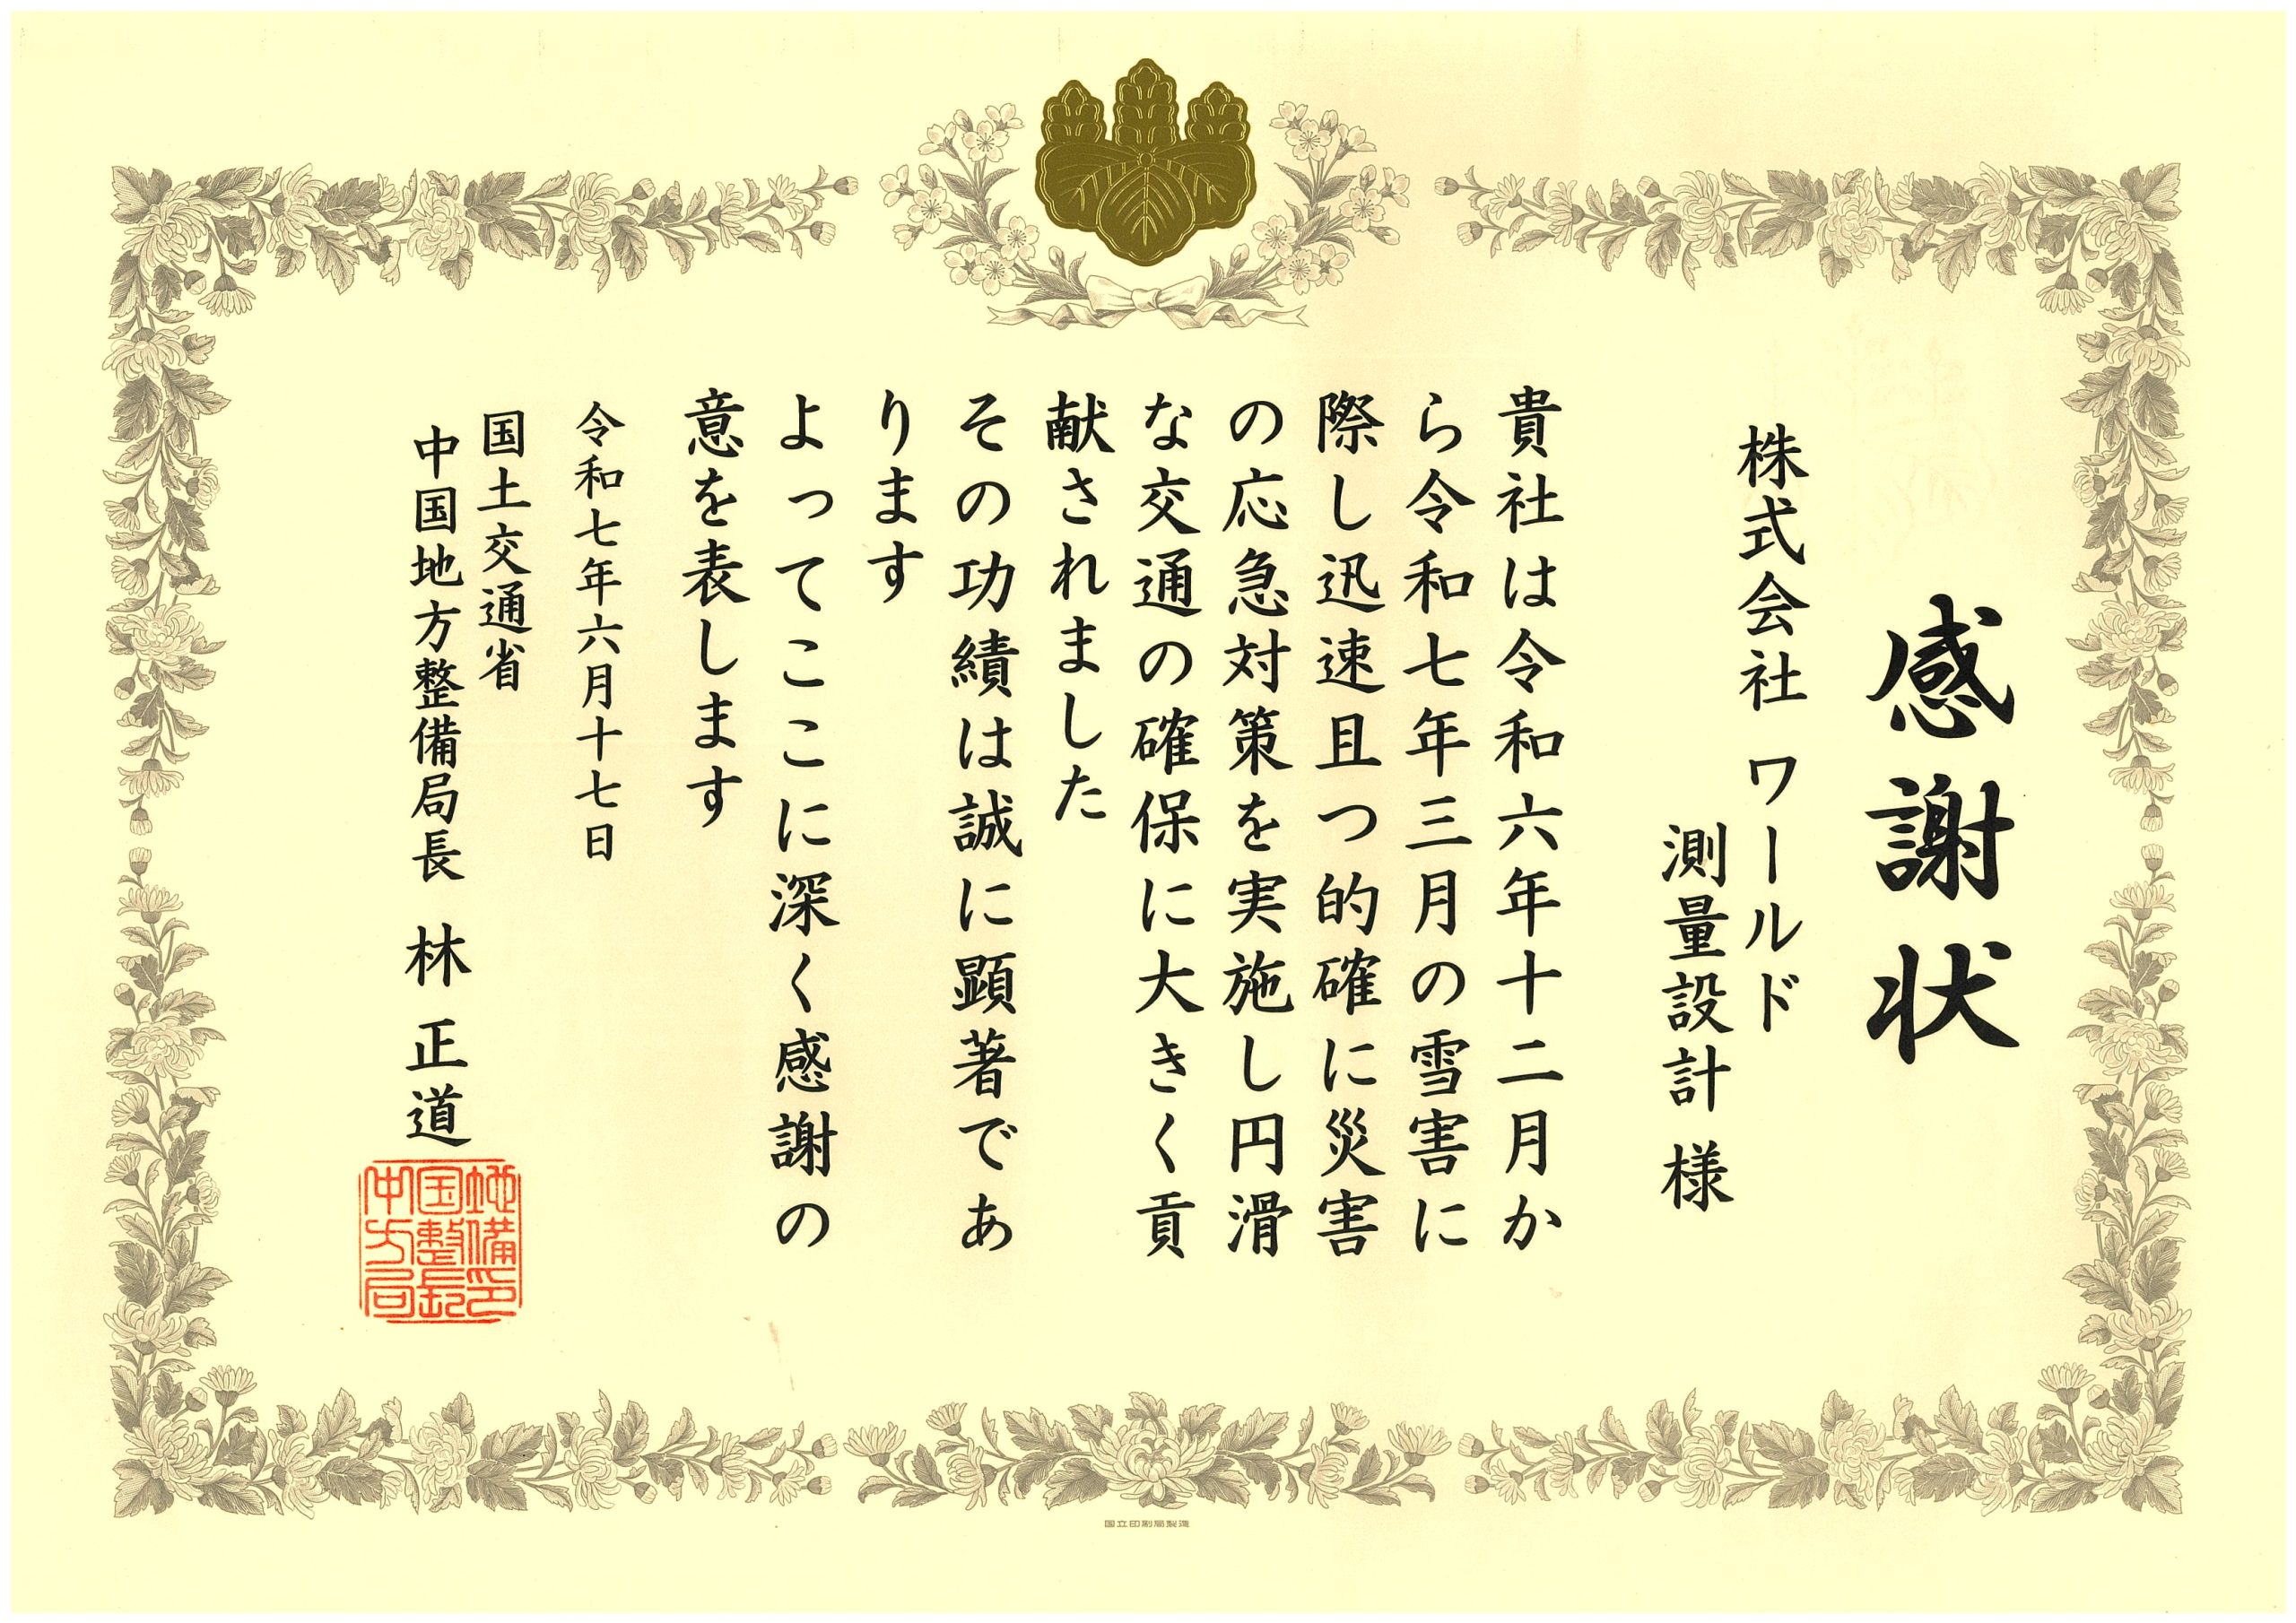 感謝状
株式会社 ワールド
測量設計 様
貴社は令和六年十二月か
ら令和七年三月の雪害に
際し迅速且つ的確に災害
の応急対策を実施し円滑
な交通の確保に大きく貢
献されました
その功績は誠に顕著であ
ります
よってここに深く感謝の
意を表します
令和七年六月十七日
国土交通省
中国地方整備局長 林 正道
地備印
国整長
中方局
国立印刷局製造